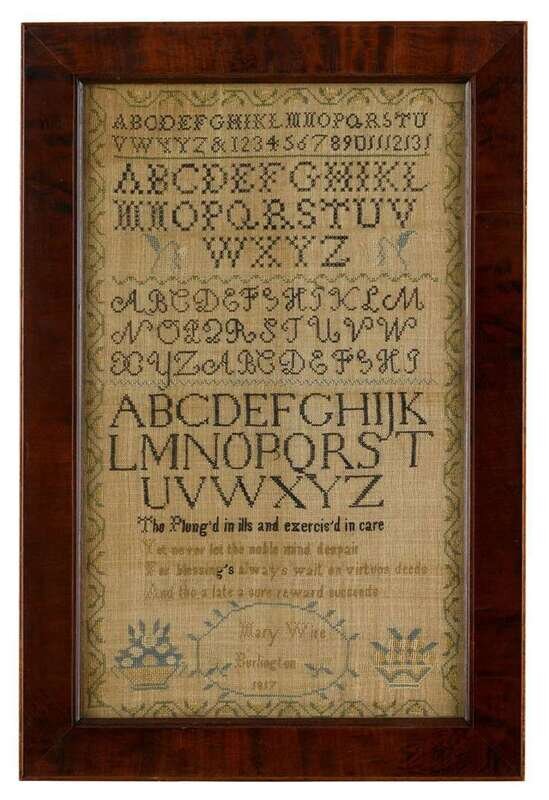 ABCDEFGHIKLMNOPQRSTU
VWXYZ&123456789
ABCDEFGHIKL
MNOPQRSTUV
WXYZ
ABCDEFGHIKLM
NOPQRSTUVW
XYZABCDEFGHI
ABCDEFGHIJK
LMNOPQRST
UVWXYZ
Tho Plung'd in ills and exercis'd in care
Yet never let the noble mind despair
For blessing's always wait on virtuos deeds
And tho a late a sure reward succeeds
Mary Wire
Burlington
1817